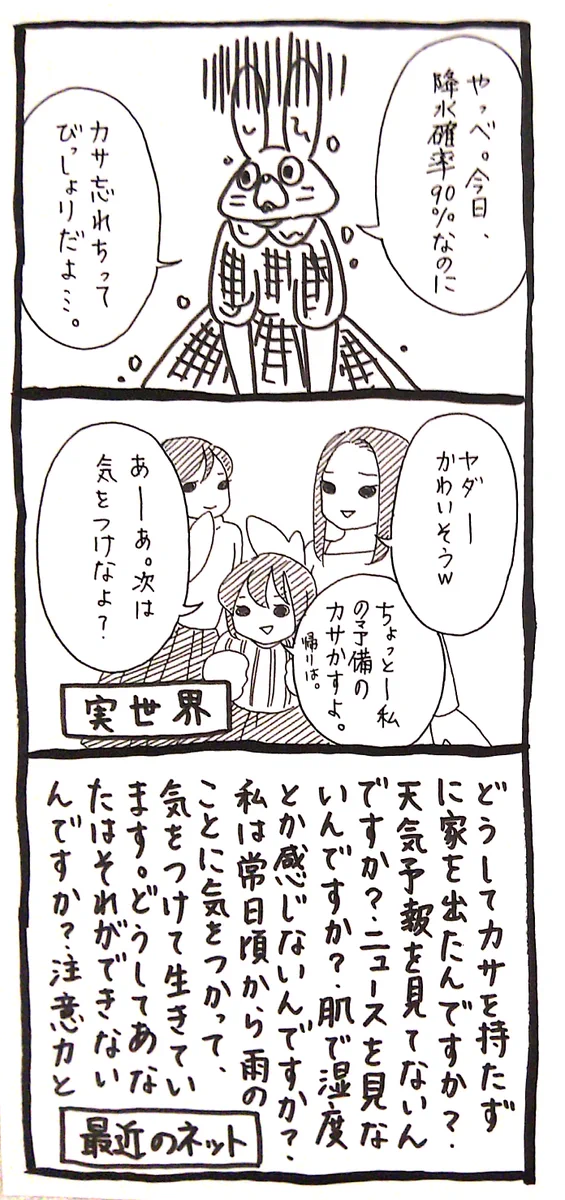 やっべ。今日、
降水確率90%なのに
カサ忘れちって
びっしょりだよ…。
ヤダー
かわいそうw
ちょっとー私
の予備の
カサかすよ。
帰りは。
あーぁ。次は
気をつけなよ?
実世界
どうしてカサを持たず
に家を出たんですか?
天気予報を見てないん
ですか?ニュースを見な
いんですか?肌で湿度
とか感じないんですか?
私は常日頃から雨の
ことに気をつかって、
気をつけて生きてい
ます。どうしてあな
たはそれができない
んですか?注意力と
最近のネット